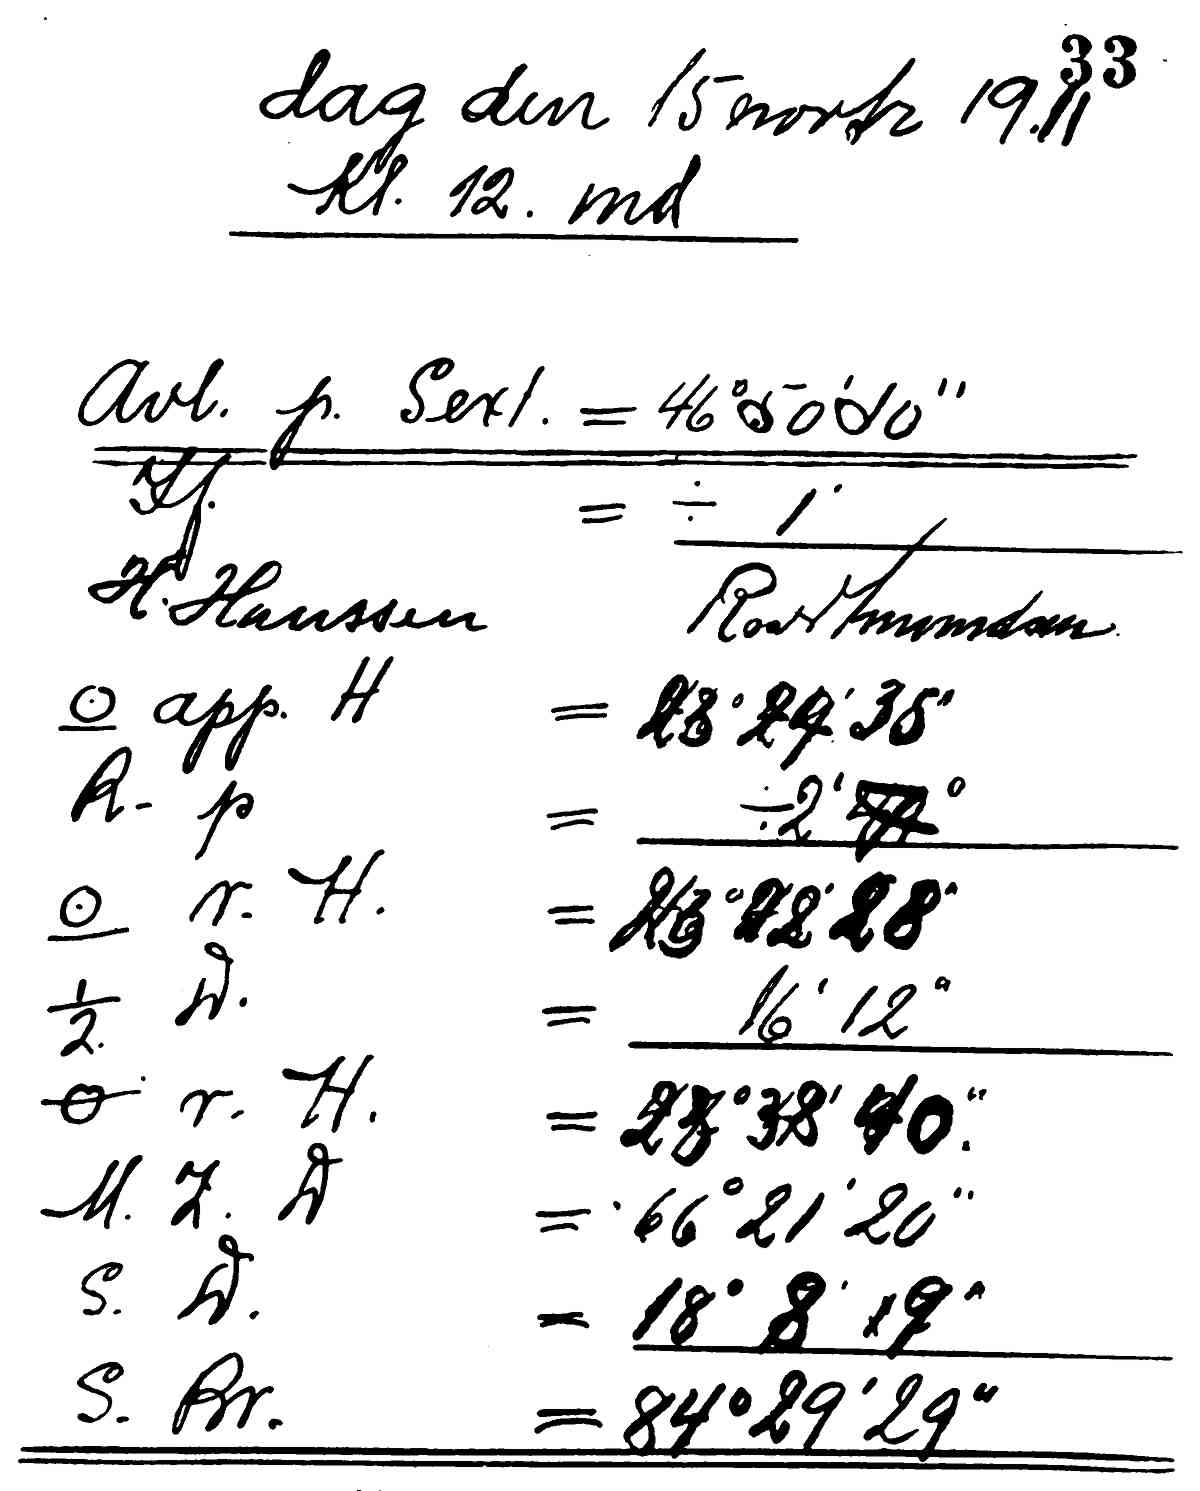 33
dag den 15 novbr 19.11
Kl. 12. md
Avl. p. Sext. = 46° 50' 10"
Kj. = ÷ 1'
H. Hanssen Roald Amundsen
☉ app. H = 23° 24' 35"
R - p = ÷ 2' 7"
☉ r. H. = 23° 22' 28"
1/2 D. = 16' 12"
⊖ r. H. = 23° 38' 40".
M. Z. D = 66° 21' 20"
S. D. = 18° 8' 19"
S. Br. = 84° 29' 29"